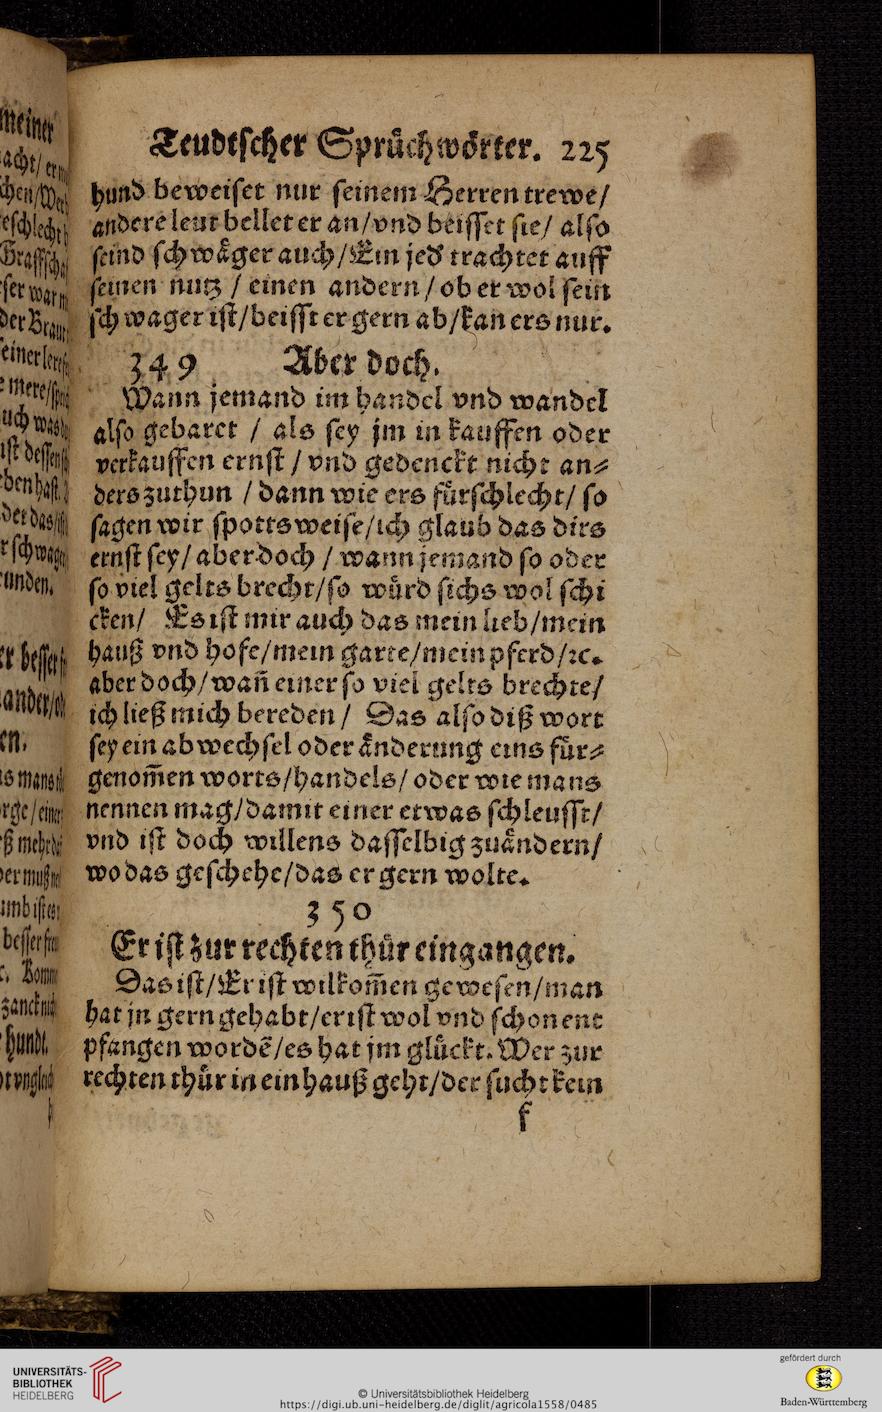 Teudtſcher Spruͤchwoͤrter. 225
hund beweiſet nur ſeinem Herren trewe/
andere leut bellet er an/vnd beiſſet ſie/ alſo
ſeind ſchwaͤger auch/Ein jed' trachtet auff
ſeinen nutz / einen andern/ ob er wol ſein
ſchwager iſt/beiſſt er gern ab/kan ers nur.
349 Aber doch.
Wann jemand im handel vnd wandel
alſo gebaret / als ſey jm in kauffen oder
verkauffen ernſt / vnd gedenckt nicht an⸗
ders zuthun / dann wie ers fuͤrſchlecht/ ſo
ſagen wir ſpottsweiſe/ich glaub das dirs
ernſt ſey/ aber doch / wann jemand ſo oder
ſo viel gelts brecht/ſo wuͤrd ſichs wol ſchi
cken/ Es iſt mir auch das mein lieb/mein
hauß vnd hofe/mein garte/mein pferd/ꝛc.
aber doch/wañ einer ſo viel gelts brechte/
ich ließ mich bereden / Das alſo diß wort
ſey ein abwechſel oder aͤnderung eins fuͤr⸗
genom̃en worts/handels/ oder wie mans
nennen mag/damit einer etwas ſchleuſſt/
vnd iſt doch willens daſſelbig zuaͤndern/
wo das geſchehe/das er gern wolte.
350
Er iſt zur rechten thuͤr eingangen.
Das iſt/Er iſt wilkom̃en geweſen/man
hat jn gern gehabt/er iſt wol vnd ſchon ent
pfangen wordẽ/es hat jm gluͤckt. Wer zur
rechten thuͤr in ein hauß geht/der ſucht kein
f
UNIVERSITÄTS-
BIBLIOTHEK
HEIDELBERG
© Universitätsbibliothek Heidelberg
https://digi.ub.uni-heidelberg.de/diglit/agricola1558/0485
gefördert durch
Baden-Württemberg